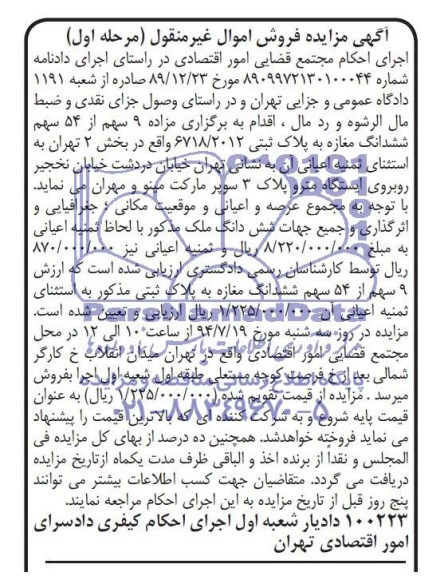 آگهی مزایده فروش اموال غیرمنقول (مرحله اول)
اجرای احکام مجتمع قضایی امور اقتصادی در راستای اجرای دادنامه
شماره ۸۹۰۹۹۷۲۱۳۰۱۰۰۰۴۴ مورخ ۸۹/۱۲/۲۳ صادره از شعبه ۱۱۹۱
دادگاه عمومی و جزایی تهران و در راستای وصول جزای نقدی و ضبط
مال الرشوه و رد مال ، اقدام به برگزاری مزاده ۹ سهم از ۵۴ سهم
ششدانگ مغازه به پلاک ثبتی ۶۷۱۸/۲۰۱۲ واقع در بخش ۲ تهران به
استثنای ثمنیه اعیانی آن به نشانی تهران خیابان دردشت خیابان نخجیر
روبروی ایستگاه مترو پلاک ۳ سوپر مارکت مینو و مهران می نماید.
با توجه به مجموع عرصه و اعیانی و موقعیت مکانی ؛ جغرافیایی و
اثرگذاری و جمیع جهات شش دانگ ملک مذکور با لحاظ ثمنیه اعیانی
به مبلغ ۸/۲۲۰/۰۰۰/۰۰۰ ریال و ثمنیه اعیانی نیز ۸۷۰/۰۰۰/۰۰۰
ریال توسط کارشناسان رسمی دادگستری ارزیابی شده است که ارزش
۹ سهم از ۵۴ سهم ششدانگ مغازه به پلاک ثبتی مذکور به استثنای
ثمنیه اعیانی آن ۱/۲۲۵/۰۰۰/۰۰۰ ریال ارزیابی و تعیین شده است.
مزایده در روز سه شنبه مورخ ۹۴/۷/۱۹ از ساعت ۱۰ الی ۱۲ در محل
مجتمع قضایی امور اقتصادی واقع در تهران میدان انقلاب خ کارگر
شمالی بعد از خ فرصت کوچه مستعلی طبقه اول شعبه اول اجرا بفروش
میرسد . مزایده از قیمت تقویم شده (۱/۲۲۵/۰۰۰/۰۰۰ ریال) به عنوان
قیمت پایه شروع و به شرکت کننده ای که بالاترین قیمت را پیشنهاد
می نماید فروخته خواهدشد. همچنین ده درصد از بهای کل مزایده فی
المجلس و نقداً از برنده اخذ و الباقی ظرف مدت یکماه ازتاریخ مزایده
دریافت می گردد. متقاضیان جهت کسب اطلاعات بیشتر می توانند
پنج روز قبل از تاریخ مزایده به این اجرای احکام مراجعه نمایند.
۱۰۰۲۲۳ دادیار شعبه اول اجرای احکام کیفری دادسرای
امور اقتصادی تهران